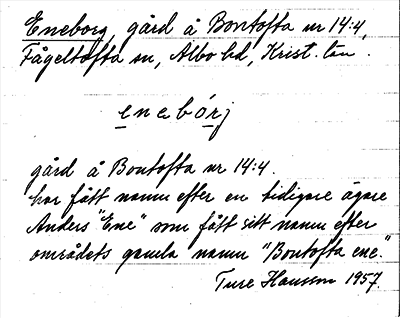 Eneborg, gård å Bontofta nr 14:4,
Fågeltofta sn, Albo hd, Krist. län.
enebórj
gård å Bontofta nr 14:4.
har fått namn efter en tidigare ägare
Anders "Ene" som fått sitt namn efter
områdets gamla namn "Bontofta ene."
Ture Hansson 1957.